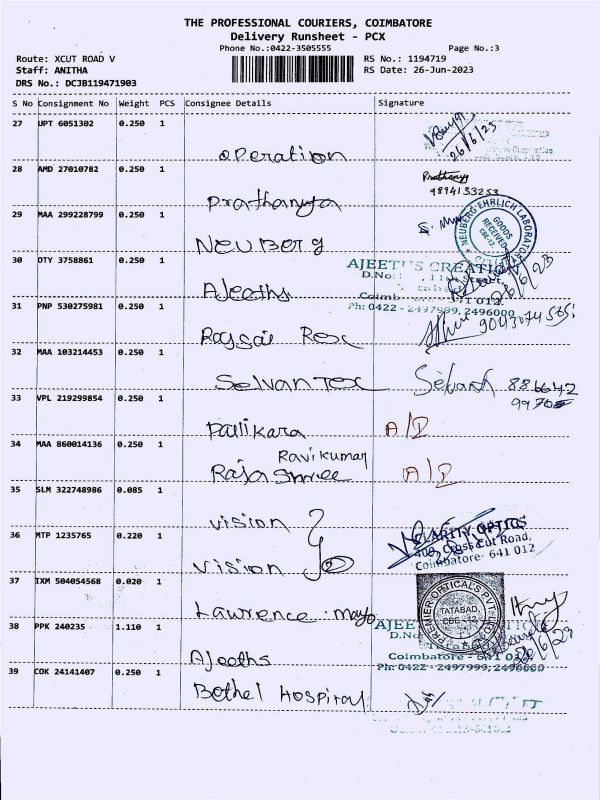 THE PROFESSIONAL COURIERS, COIMBATORE
Delivery Runsheet - PCX
Phone No.:0422-3505555
Page No.:3
Route: XCUT ROAD V
RS No.: 1194719
Staff: ANITHA
RS Date: 26-Jun-2023
DRS No.: DCJB119471903
S No Consignment No Weight PCS Consignee Details Signature
27 UPT 6051302 0.250 1
operation
26/6/23
28 AMD 27010782 0.250 1
Prathanya
9894153253
29 MAA 299228799 0.250 1
Neuberg
NEUBERG EHRLICH LABORATORY
GOODS RECEIVED
CBE-12
30 DTY 3758861 0.250 1
Ajeeths
AJEETH'S CREATION
D.No: 11 Street,
Coimb 641 012.
Ph: 0422 - 2497999, 2496000
26/6/23
31 PNP 530275981 0.250 1
32 MAA 103214453 0.250 1
Selvan Tex
33 VPL 219299854 0.250 1
Pallikara
A/D
34 MAA 860014136 0.250 1
Ravi kumar
Raja Shree
A/D
35 SLM 322748986 0.085 1
vision
36 MTP 1235765 0.220 1
vision
CLARITY OPTICS
408, Cross Cut Road,
Coimbatore- 641 012
37 IXM 504054568 0.020 1
Lawrence . mayo
PREMIER OPTICALS PVT
TATABAD,
CBE -12
38 PPK 240235 1.110 1
Ajeeths
AJEE
D.No
Coimbatore - 641 012
Ph: 0422 - 2497999, 2496000
26/6/23
39 COK 24141407 0.250 1
Bethel Hospital